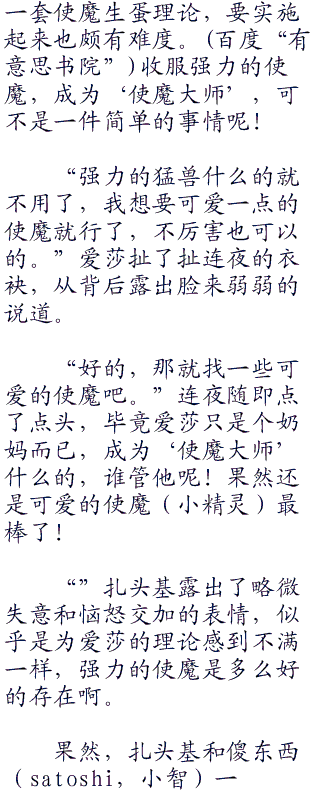 一套使魔生蛋理论，要实施
起来也颇有难度。(百度“有
意思书院”)收服强力的使
魔，成为‘使魔大师’，可
不是一件简单的事情呢！
“强力的猛兽什么的就
不用了，我想要可爱一点的
使魔就行了，不厉害也可以
的。”爱莎扯了扯连夜的衣
袂，从背后露出脸来弱弱的
说道。
“好的，那就找一些可
爱的使魔吧。”连夜随即点
了点头，毕竟爱莎只是个奶
妈而已，成为‘使魔大师’
什么的，谁管他呢！果然还
是可爱的使魔（小精灵）最
棒了！
“”扎头基露出了略微
失意和恼怒交加的表情，似
乎是为爱莎的理论感到不满
一样，强力的使魔是多么好
的存在啊。
果然，扎头基和傻东西
（satoshi，小智）一